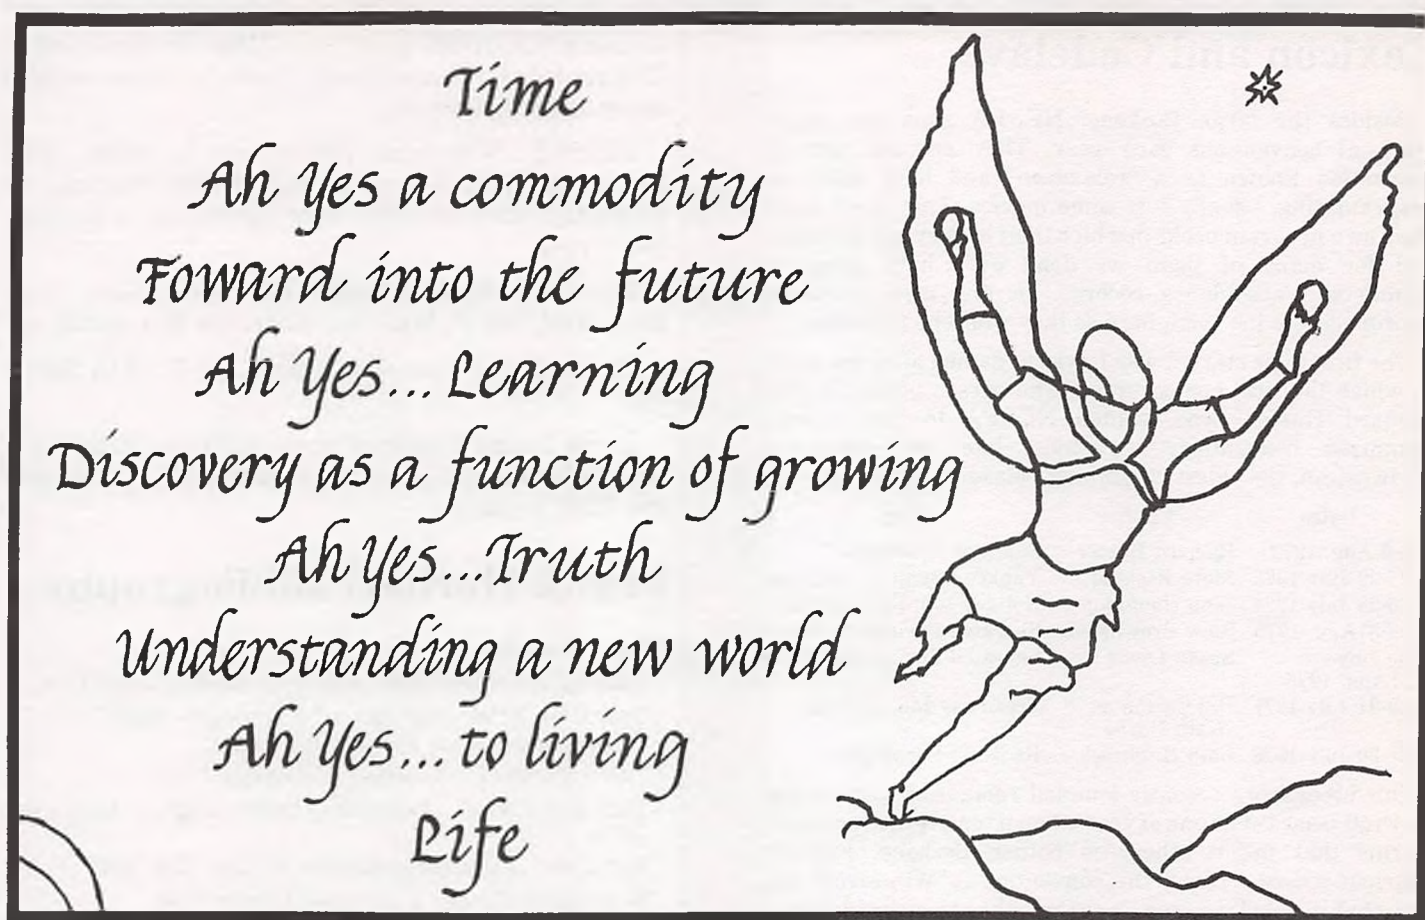 Time
Ah Yes a commodity
Foward into the future
Ah Yes... Learning
Discovery as a function of growing
Ah Yes... Truth
Understanding a new world
Ah Yes... to living
Life